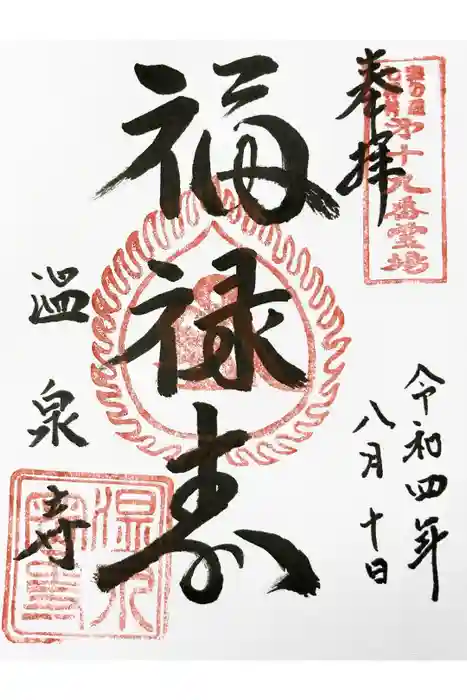 奉拝
第十九番霊場
令和四年
八月十日
福禄寿
温泉寺